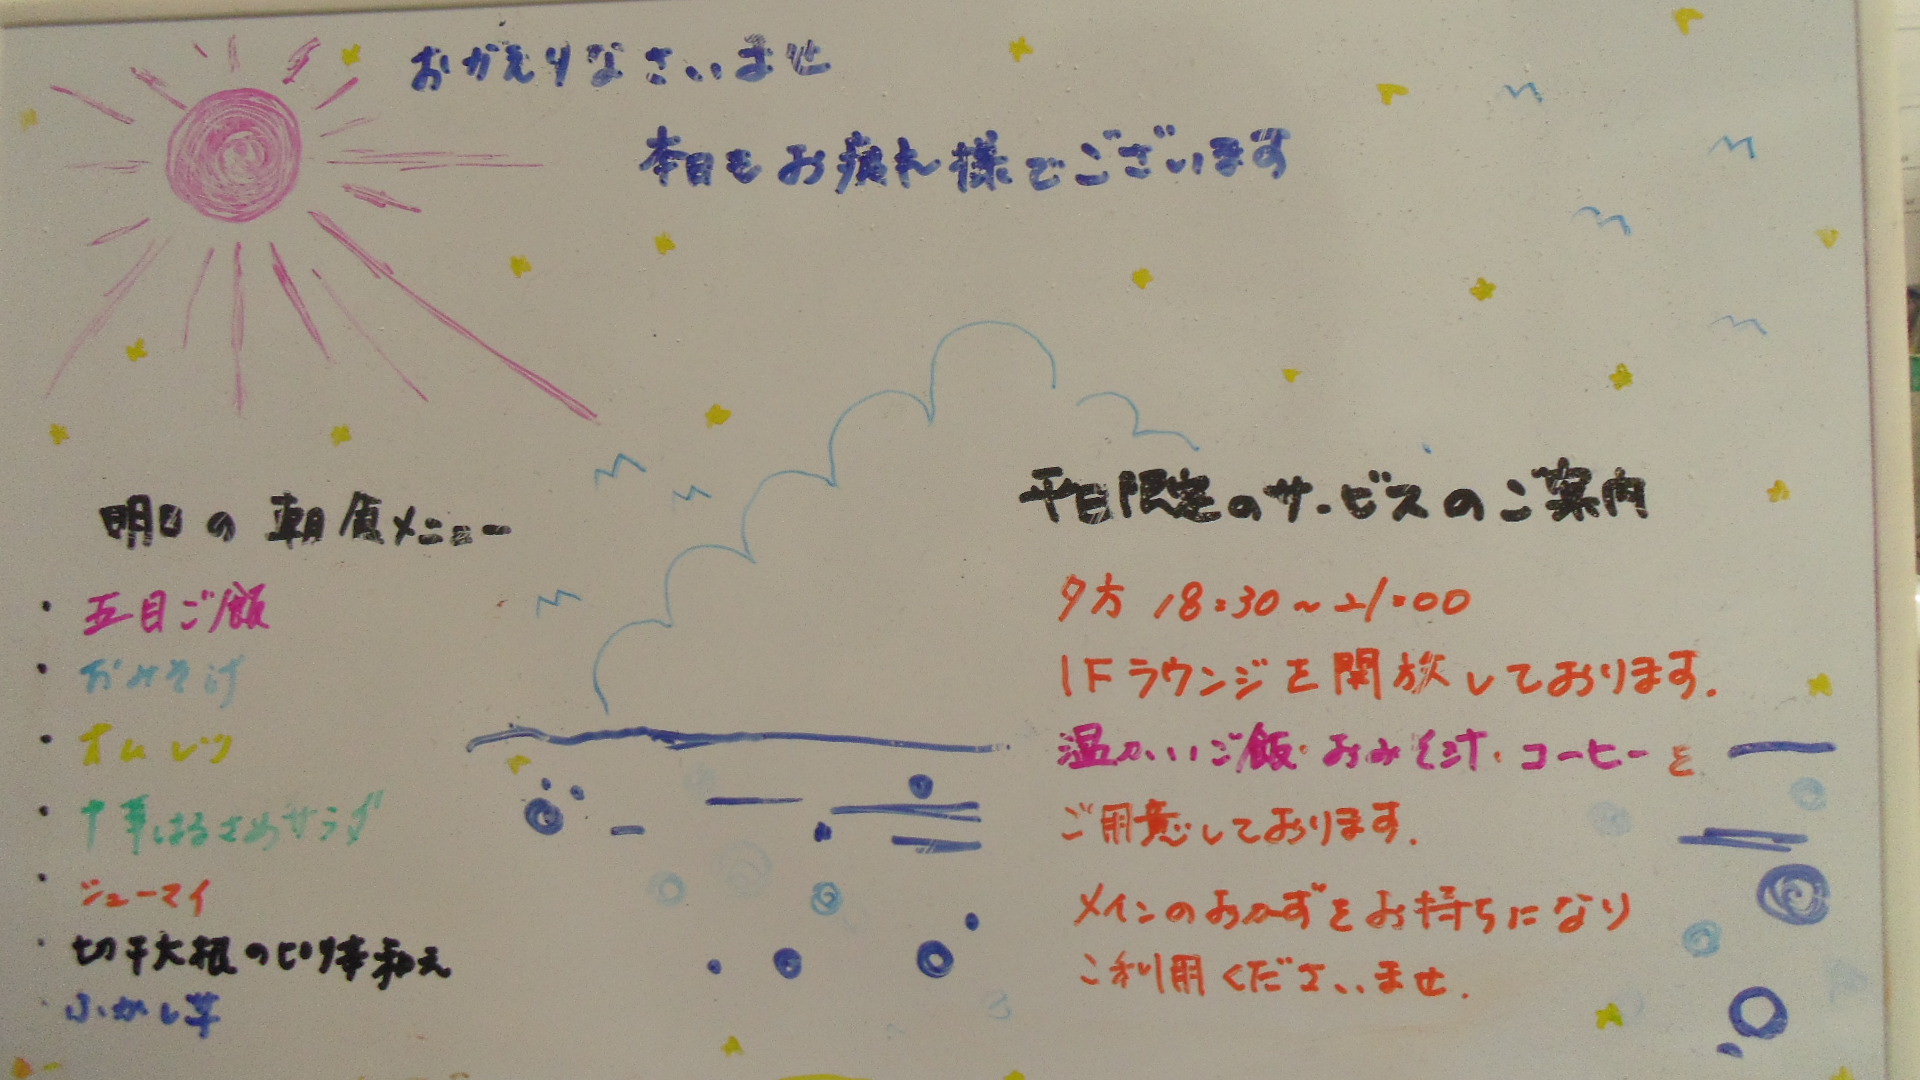 おかえりなさいませ
本日もお疲れ様でございます
明日の朝食メニュー
・五目ご飯
・おみそ汁
・オムレツ
・中華はるさめサラダ
・シューマイ
・切干大根のピリ辛和え
・ふかし芋
平日限定のサービスのご案内
夕方 18:30~21:00
1Fラウンジを開放しております.
温かいご飯・おみそ汁・コーヒーを
ご用意しております.
メインのおかずをお持ちになり
ご利用くださいませ.